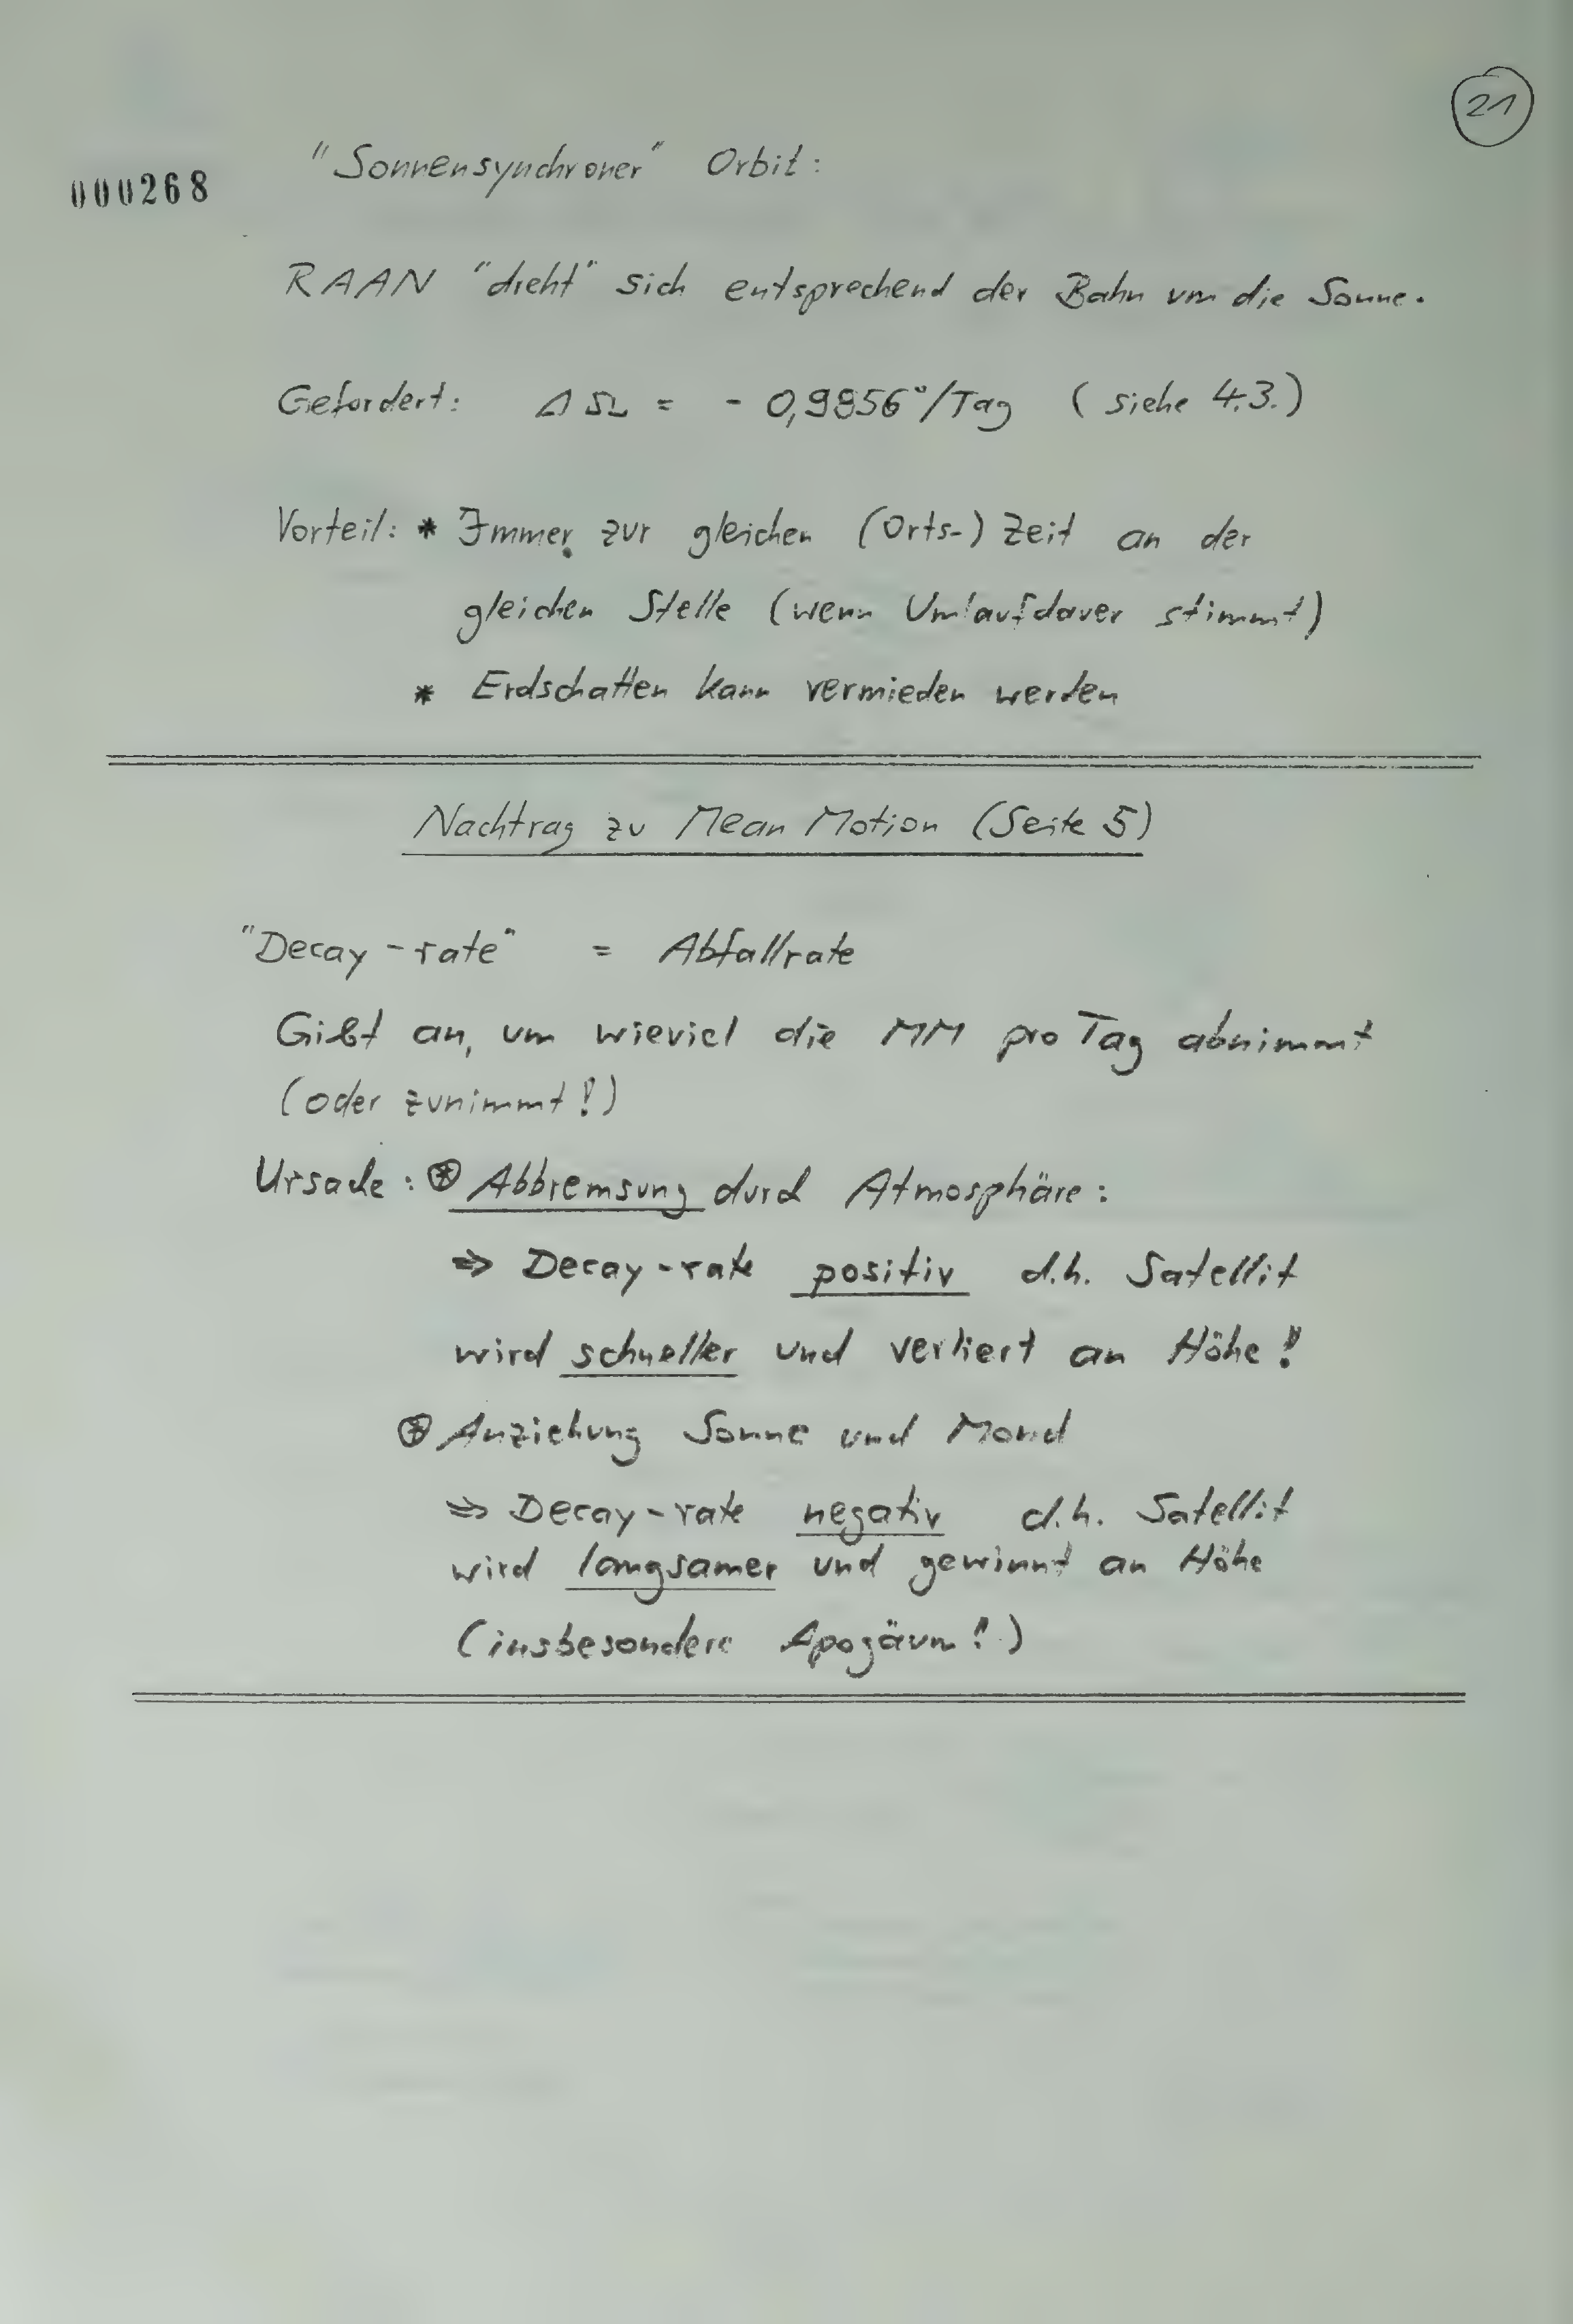 21
000268
"Sonnensynchroner" Orbit:
RAAN "dreht" sich entsprechend der Bahn um die Sonne.
Gefordert: ΔΩ = - 0,9856°/Tag (siehe 4.3.)
Vorteil: * Immer zur gleichen (Orts-) Zeit an der
gleichen Stelle (wenn Umlaufdauer stimmt)
* Erdschatten kann vermieden werden
Nachtrag zu Mean Motion (Seite 5)
"Decay-rate" = Abfallrate
Gibt an, um wieviel die MM pro Tag abnimmt
(oder zunimmt!)
Ursache: ⊛ Abbremsung durch Atmosphäre:
⇒ Decay-rate positiv d.h. Satellit
wird schneller und verliert an Höhe!
⊛ Anziehung Sonne und Mond
⇒ Decay-rate negativ d.h. Satellit
wird langsamer und gewinnt an Höhe
(insbesondere Apogäum!)